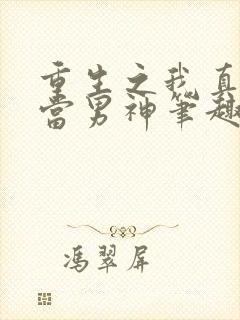 重生之我真
当男神笔趣
冯翠屏